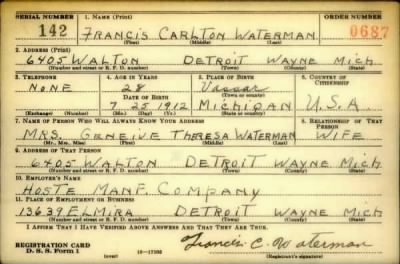 SERIAL NUMBER 1. NAME (Print) ORDER NUMBER
142 FRANCIS CARLTON WATERMAN 0687
(First) (Middle) (Last)
2. ADDRESS (Print)
6405 WALTON DETROIT WAYNE MICH.
(Number and street or R. F. D. number) (Town) (County) (State)
3. TELEPHONE 4. AGE IN YEARS 5. PLACE OF BIRTH 6. COUNTRY OF CITIZENSHIP
NONE 28 Vassar
DATE OF BIRTH (Town or county)
7 25 1912 MICHIGAN U.S.A.
(Exchange) (Number) (Mo.) (Day) (Yr.) (State or country)
7. NAME OF PERSON WHO WILL ALWAYS KNOW YOUR ADDRESS 8. RELATIONSHIP OF THAT PERSON
MRS. GENEIVE THERESA WATERMAN WIFE
(Mr., Mrs., Miss) (First) (Middle) (Last)
9. ADDRESS OF THAT PERSON
6405 WALTON DETROIT WAYNE MICH
(Number and street or R. F. D. number) (Town) (County) (State)
10. EMPLOYER'S NAME
HOSTE MANF. COMPANY
11. PLACE OF EMPLOYMENT OR BUSINESS
13639 ELMIRA DETROIT WAYNE MICH
(Number and street or R. F. D. number) (Town) (County) (State)
I AFFIRM THAT I HAVE VERIFIED ABOVE ANSWERS AND THAT THEY ARE TRUE.
REGISTRATION CARD
D. S. S. Form 1 (over) 16—17105 Francis C. Waterman
(Registrant's signature)